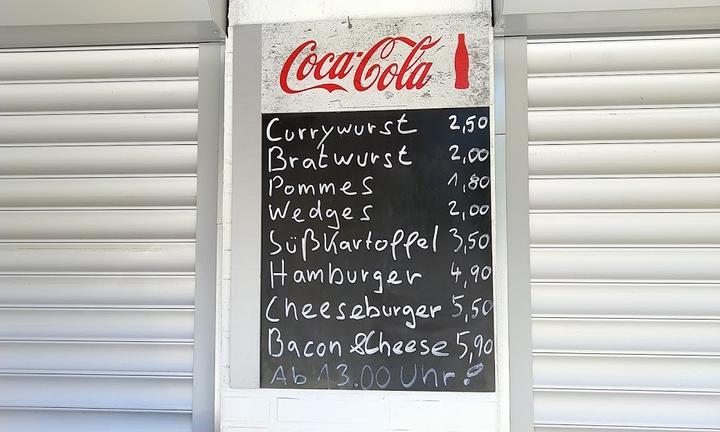 Coca-Cola
Currywurst 2,50
Bratwurst 2,00
Pommes 1,80
Wedges 2,00
Süßkartoffel 3,50
Hamburger 4,90
Cheeseburger 5,50
Bacon &Cheese 5,90
Ab 13.00 Uhr!